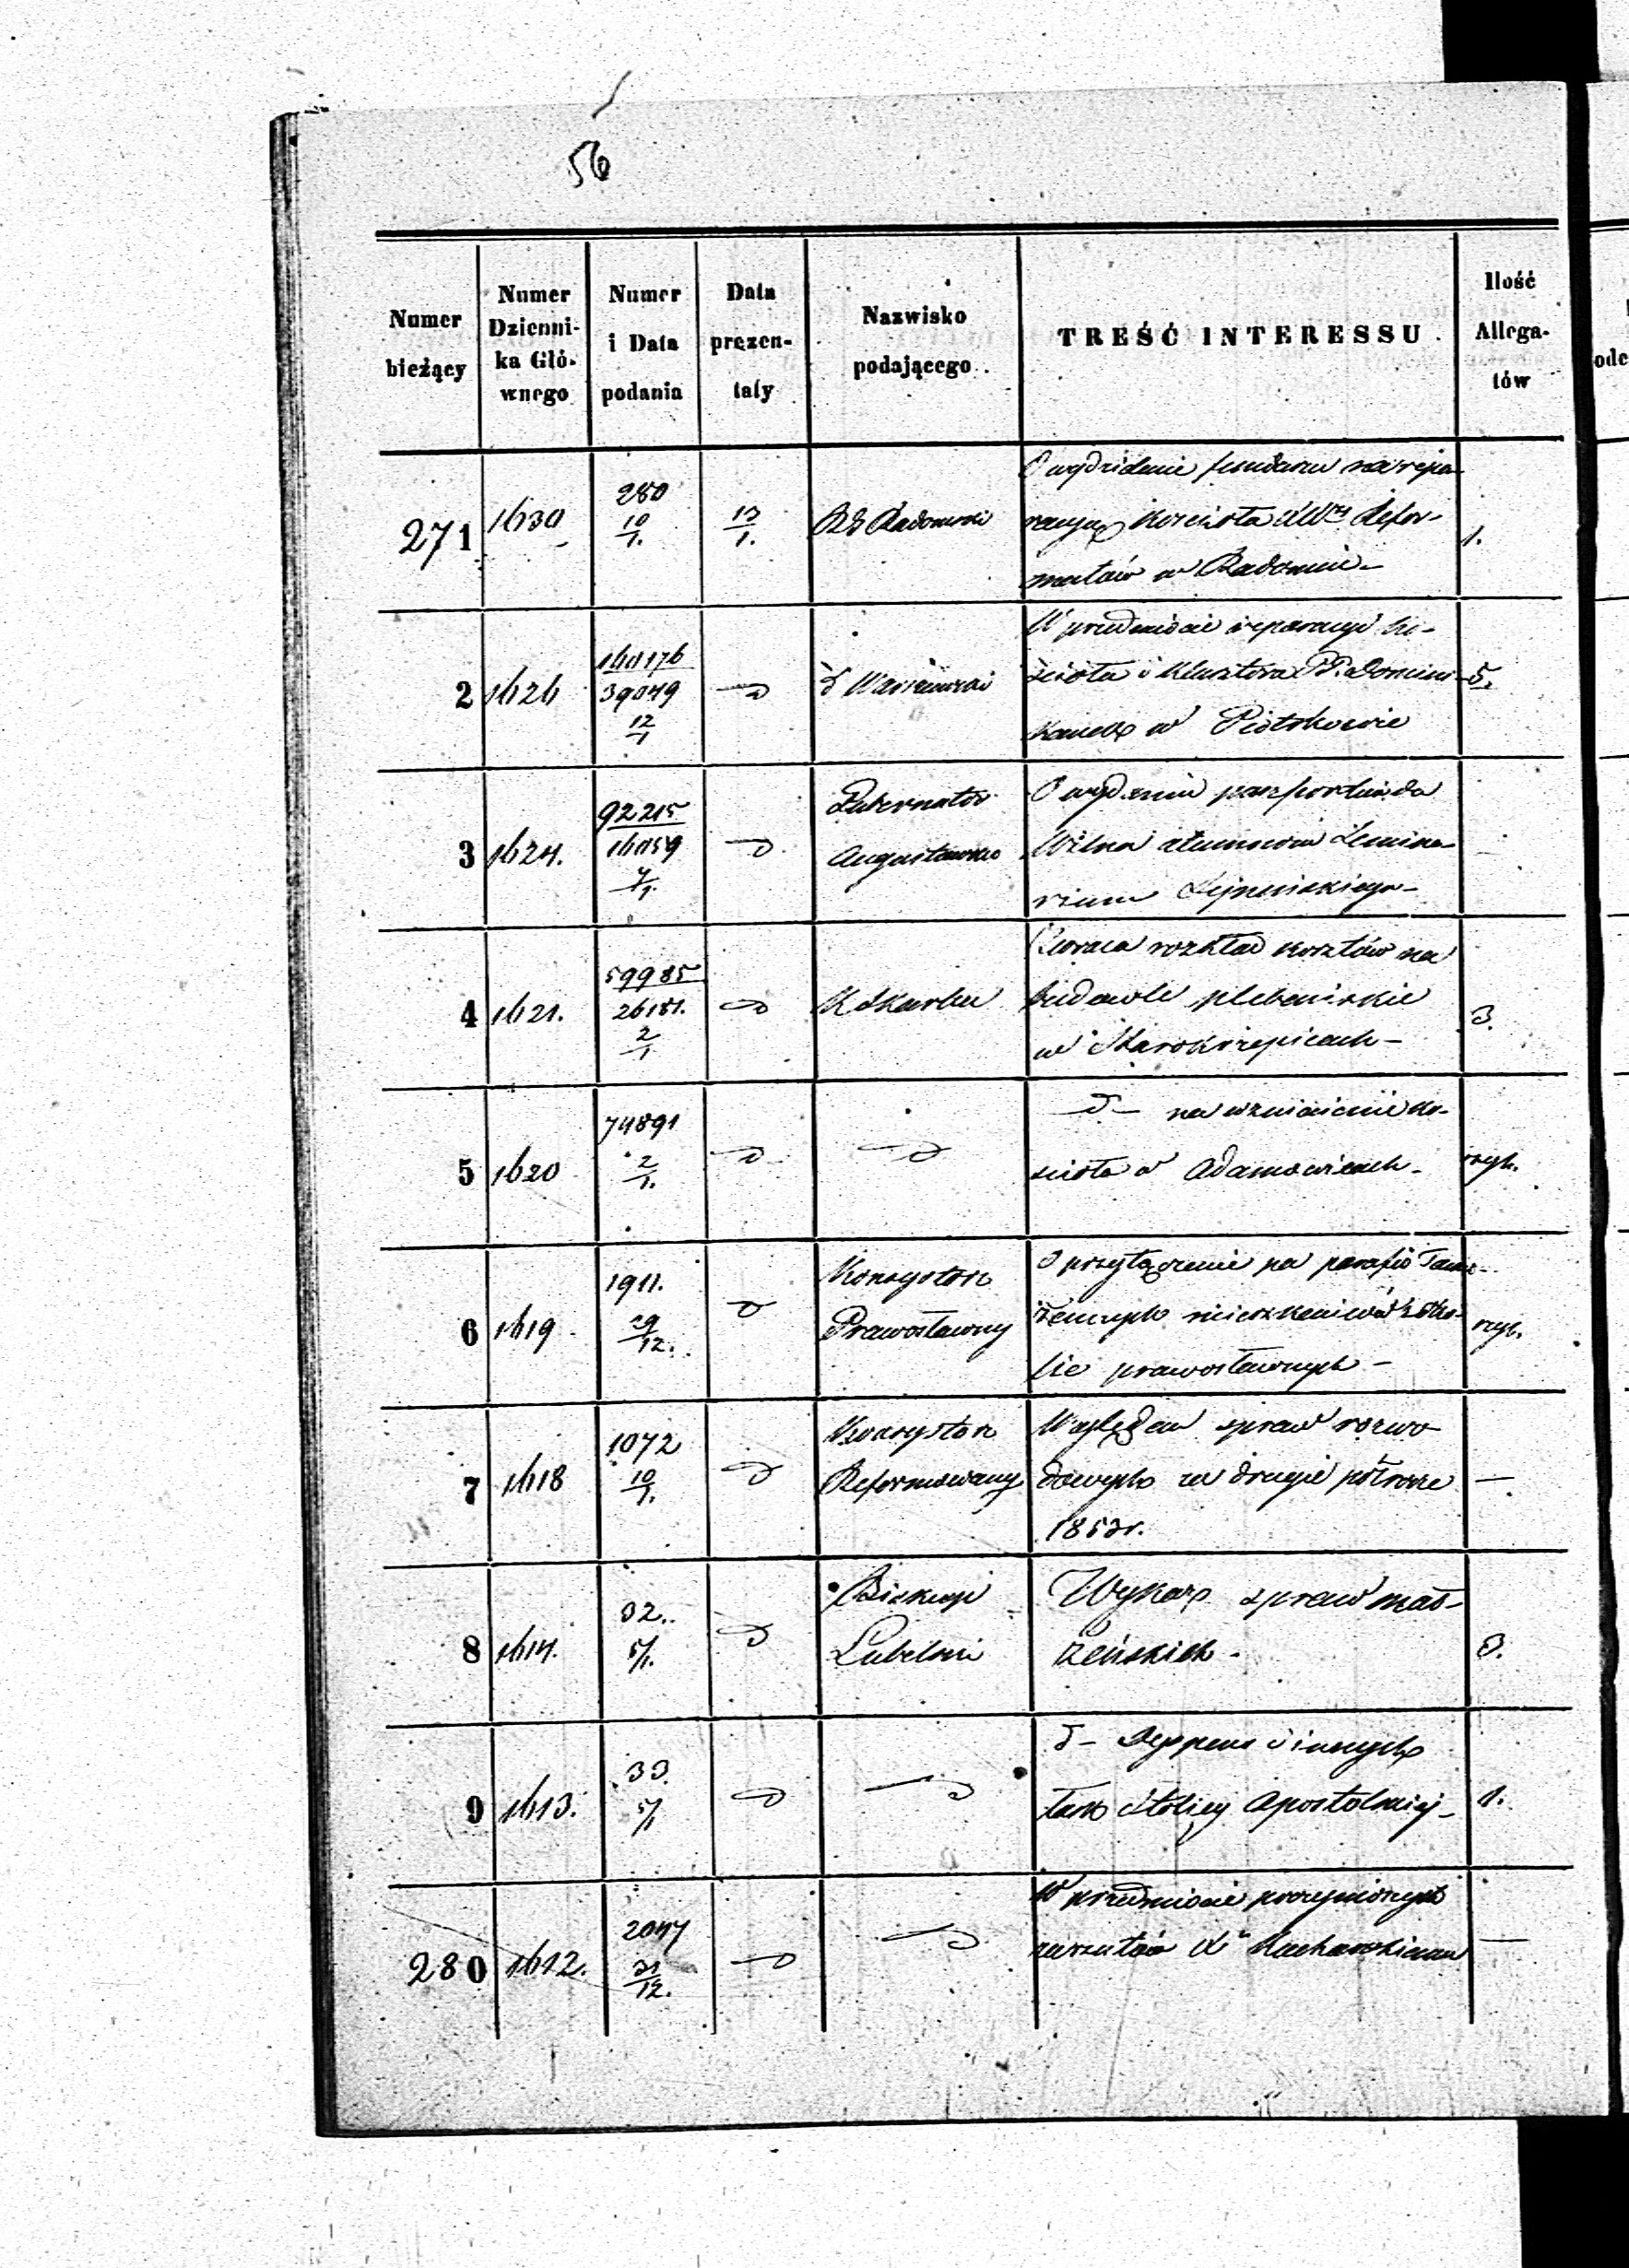 56
Numer bieżący | Numer Dzienni-ka Głó-wnego | Numer i Data podania | Data prezen-taty | Nazwisko podającego | TREŚĆ INTERESSU | Ilość Allega-tów
271 | 1630 | 280 10/1. | 13/1. | RG Radomski | O wydzielenie funduszu na repa-
racyą Kościoła XXrs Refor- | 1.
matów w Radomiu –
2 | 1626 | 160176 39049 12/1 | d | d Warszawski | W przedmiocie reparacyi ko-
ścioła i Klasztoru PP. Domini- | 5.
kanek w Piotrkowie
3 | 1624. | 92215 16059 7/1. | d | Gubernator Augustowski | O wydanie paszportu do
Wilna alumnowi Semina-
rium Sejneńskiego –
4 | 1621. | 59985 26181. 2/1 | d | K Skarbu | Zwraca rozkład kosztów na
budowle plebańskie | 3.
w Starokrzepicach –
5 | 1620 | 74891 2/1. | d | d | d – na wzniesienie ko-
ścioła w Adamowicach – | szyt.
6 | 1619 | 1911. 29/12. | d | Konsystorz Prawosławny | O przyłączenie pa parafii
mieszkańców | szyt.
lie prawosławnych –
7 | 1618 | 1072 10/1. | d | Konsystorz Reformowany | Względem spraw rozwo-
dowych za drugie półrocze | –
1853 r.
8 | 1614. | 32.. 5/1. | d | Biskup Lubelski | Wykaz spraw mał-
żeńskich – | 3.
9 | 1613. | 33. 5/1 | d | d | d – Dyspens i innych
łask Stolicy Apostolskiej – | 1.
280 | 1612. | 2047 31/12. | d | d | W przedmiocie poczynionych
zarzutów Xu Kucharskiemu | –